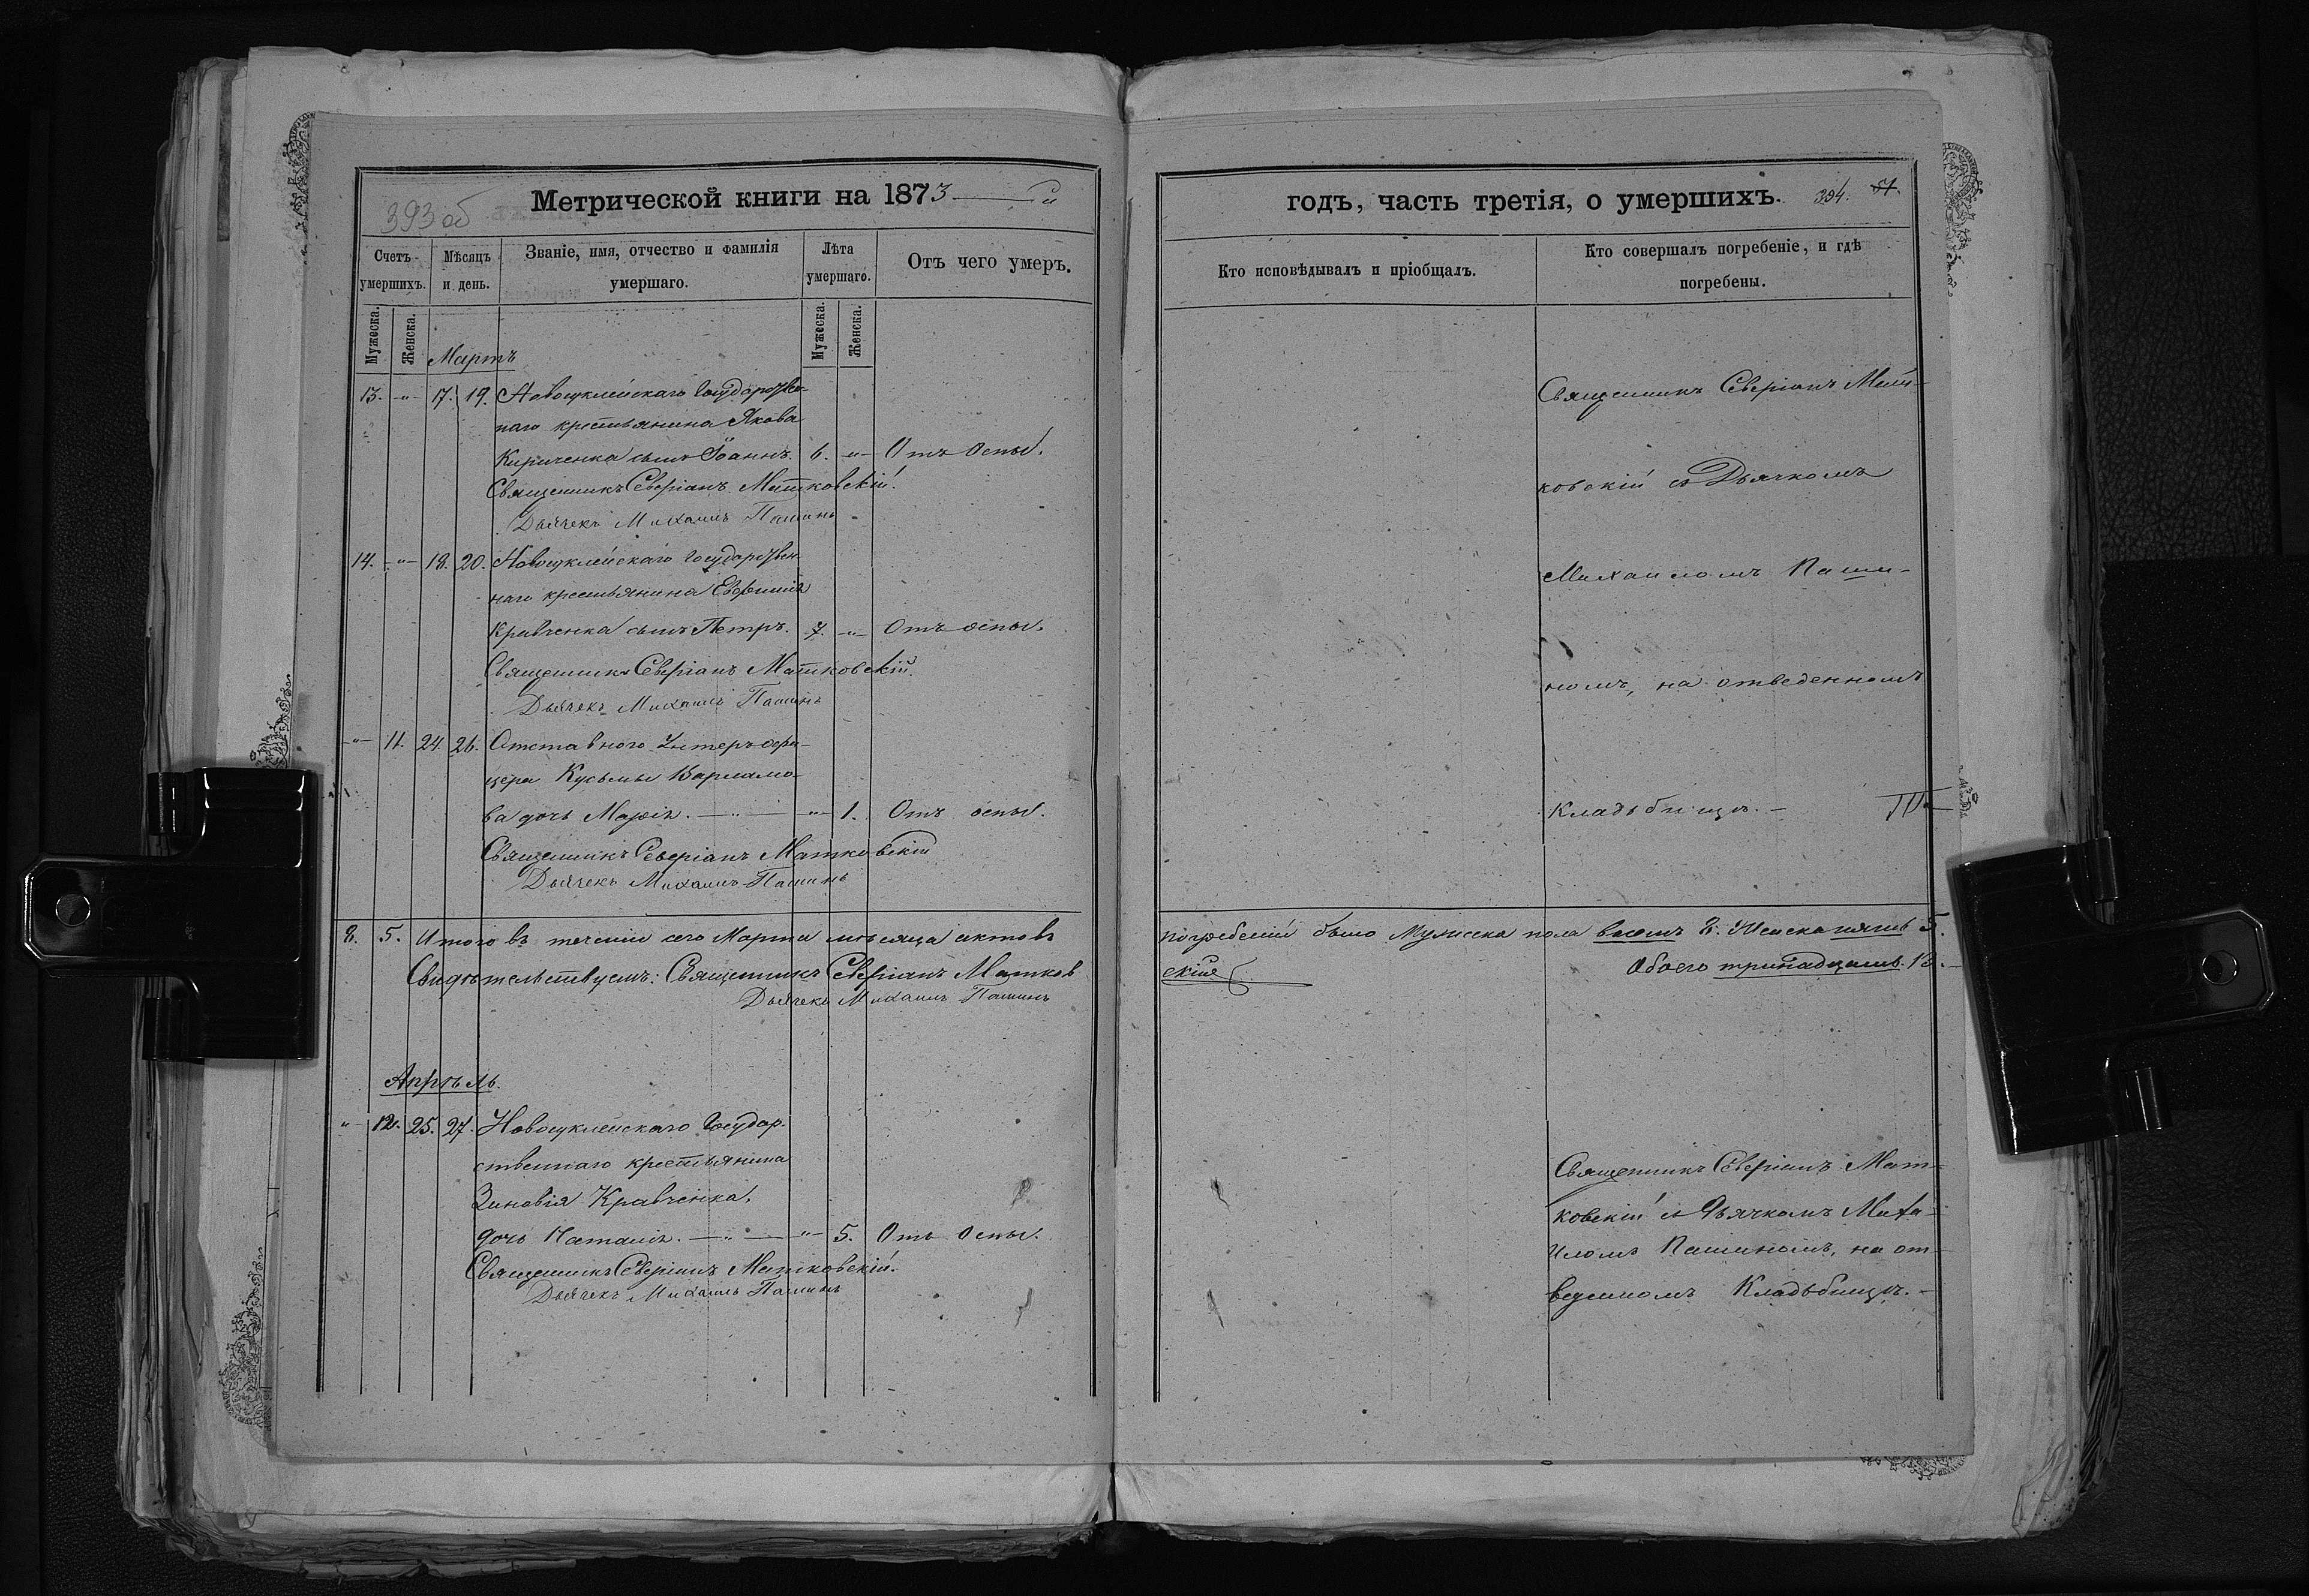 393 об
Метрической книги на 1873 й
Счетъ умершихъ.
Мѣсяцъ и день.
Званіе, имя, отчество и фамилія умершаго.
Лѣта умершаго.
Отъ чего умеръ.
Мужеска.
Женска.
Мужеска.
Женска.
Мартъ
13. -"- 17. 19. Новоуклеинскаго Государствен-
наго крестьянина Якова
Кириченка сынъ Іоаннъ. 6. -"- Отъ оспы.
Священникъ Северіанъ Матковскій.
Дьячекъ Михаилъ Пашинъ
14. -"- 18. 20. Новоуклейскаго Государствен-
наго крестьянина Евфимія
Кравченка сынъ Петръ. 7. -"- Отъ оспы.
Священникъ Северіанъ Матковскій.
Дьячекъ Михаилъ Пашинъ
-"- 11. 24. 26. Отставного Унтеръ-офи-
цера Кузьмы Варламо-
ва дочь Марія. -"- 1. Отъ оспы.
Священникъ Северіанъ Матковскій
Дьячекъ Михаилъ Пашинъ
8. 5. Итого въ теченіи сего Марта мѣсяца актовъ
Свидѣтельствуемъ: Священникъ Северіанъ Матков
Дьячекъ Михаилъ Пашинъ
Апрѣль.
" 12. 25. 27. Новоуклейскаго Государ-
ственнаго крестьянина
Зиновія Кравченка,
дочь Наталія. -"- -"- 5. Отъ оспы.
Священникъ Северіанъ Матковскій.
Дьячекъ Михаилъ Пашинъ
годъ, часть третія, о умершихъ.
394.
51.
Кто исповѣдывалъ и пріобщалъ.
Кто совершалъ погребеніе, и гдѣ
погребены.
Священникъ Северіанъ Мат-
ковскій съ Дьячкомъ
Михаиломъ Паши-
номъ, на отведенномъ
Кладбищѣ. -
погребеній было Мужеска пола восемь 8. Женска пять 5.
скій
Обоего тринадцать. 13.
Священникъ Северіанъ Мат-
ковскій съ Дьячкомъ Миха-
иломъ Пашиномъ, на от-
веденномъ Кладбищѣ. -